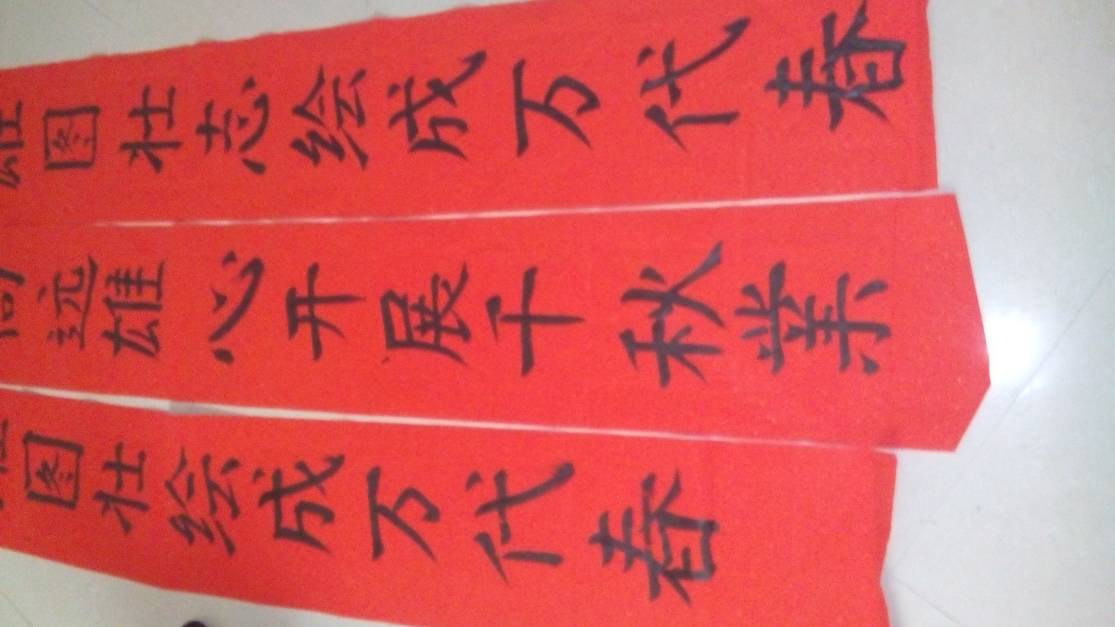 雄图壮志绘成万代春
远雄心开展千秋業
图壮绘成万代春